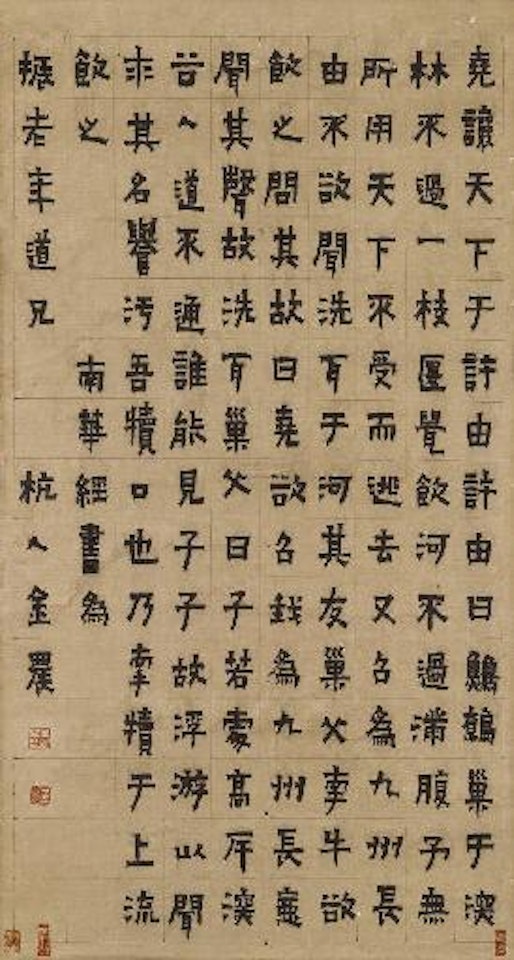 堯讓天下于許由許由曰鷦鷯巢于深
林不過一枝匽鼠飲河不過滿腹予無
所用天下不受而逃去又召為九州長
由不欲聞洗耳于河其友巢父牽牛欲
飲之問其故曰堯欲召我為九州長惡
聞其聲故洗耳巢父曰子若處高岸深
谷人道不通誰能見子子故浮游以聞
求其名譽污吾犢口也乃牽犢于上流
飲之 南華經書為
振老年道兄 杭人金農